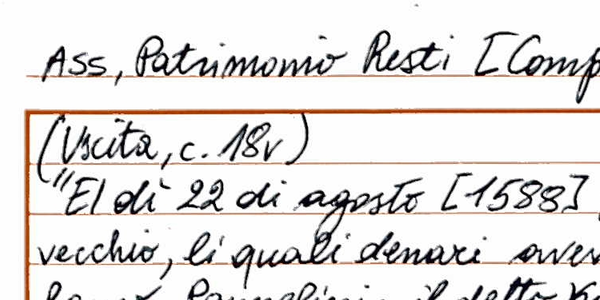 ASS, Patrimonio Resti [Comp
(Uscita, c. 18v)
"El dì 22 di agosto [1588]
vecchio, li quali denari
il detto